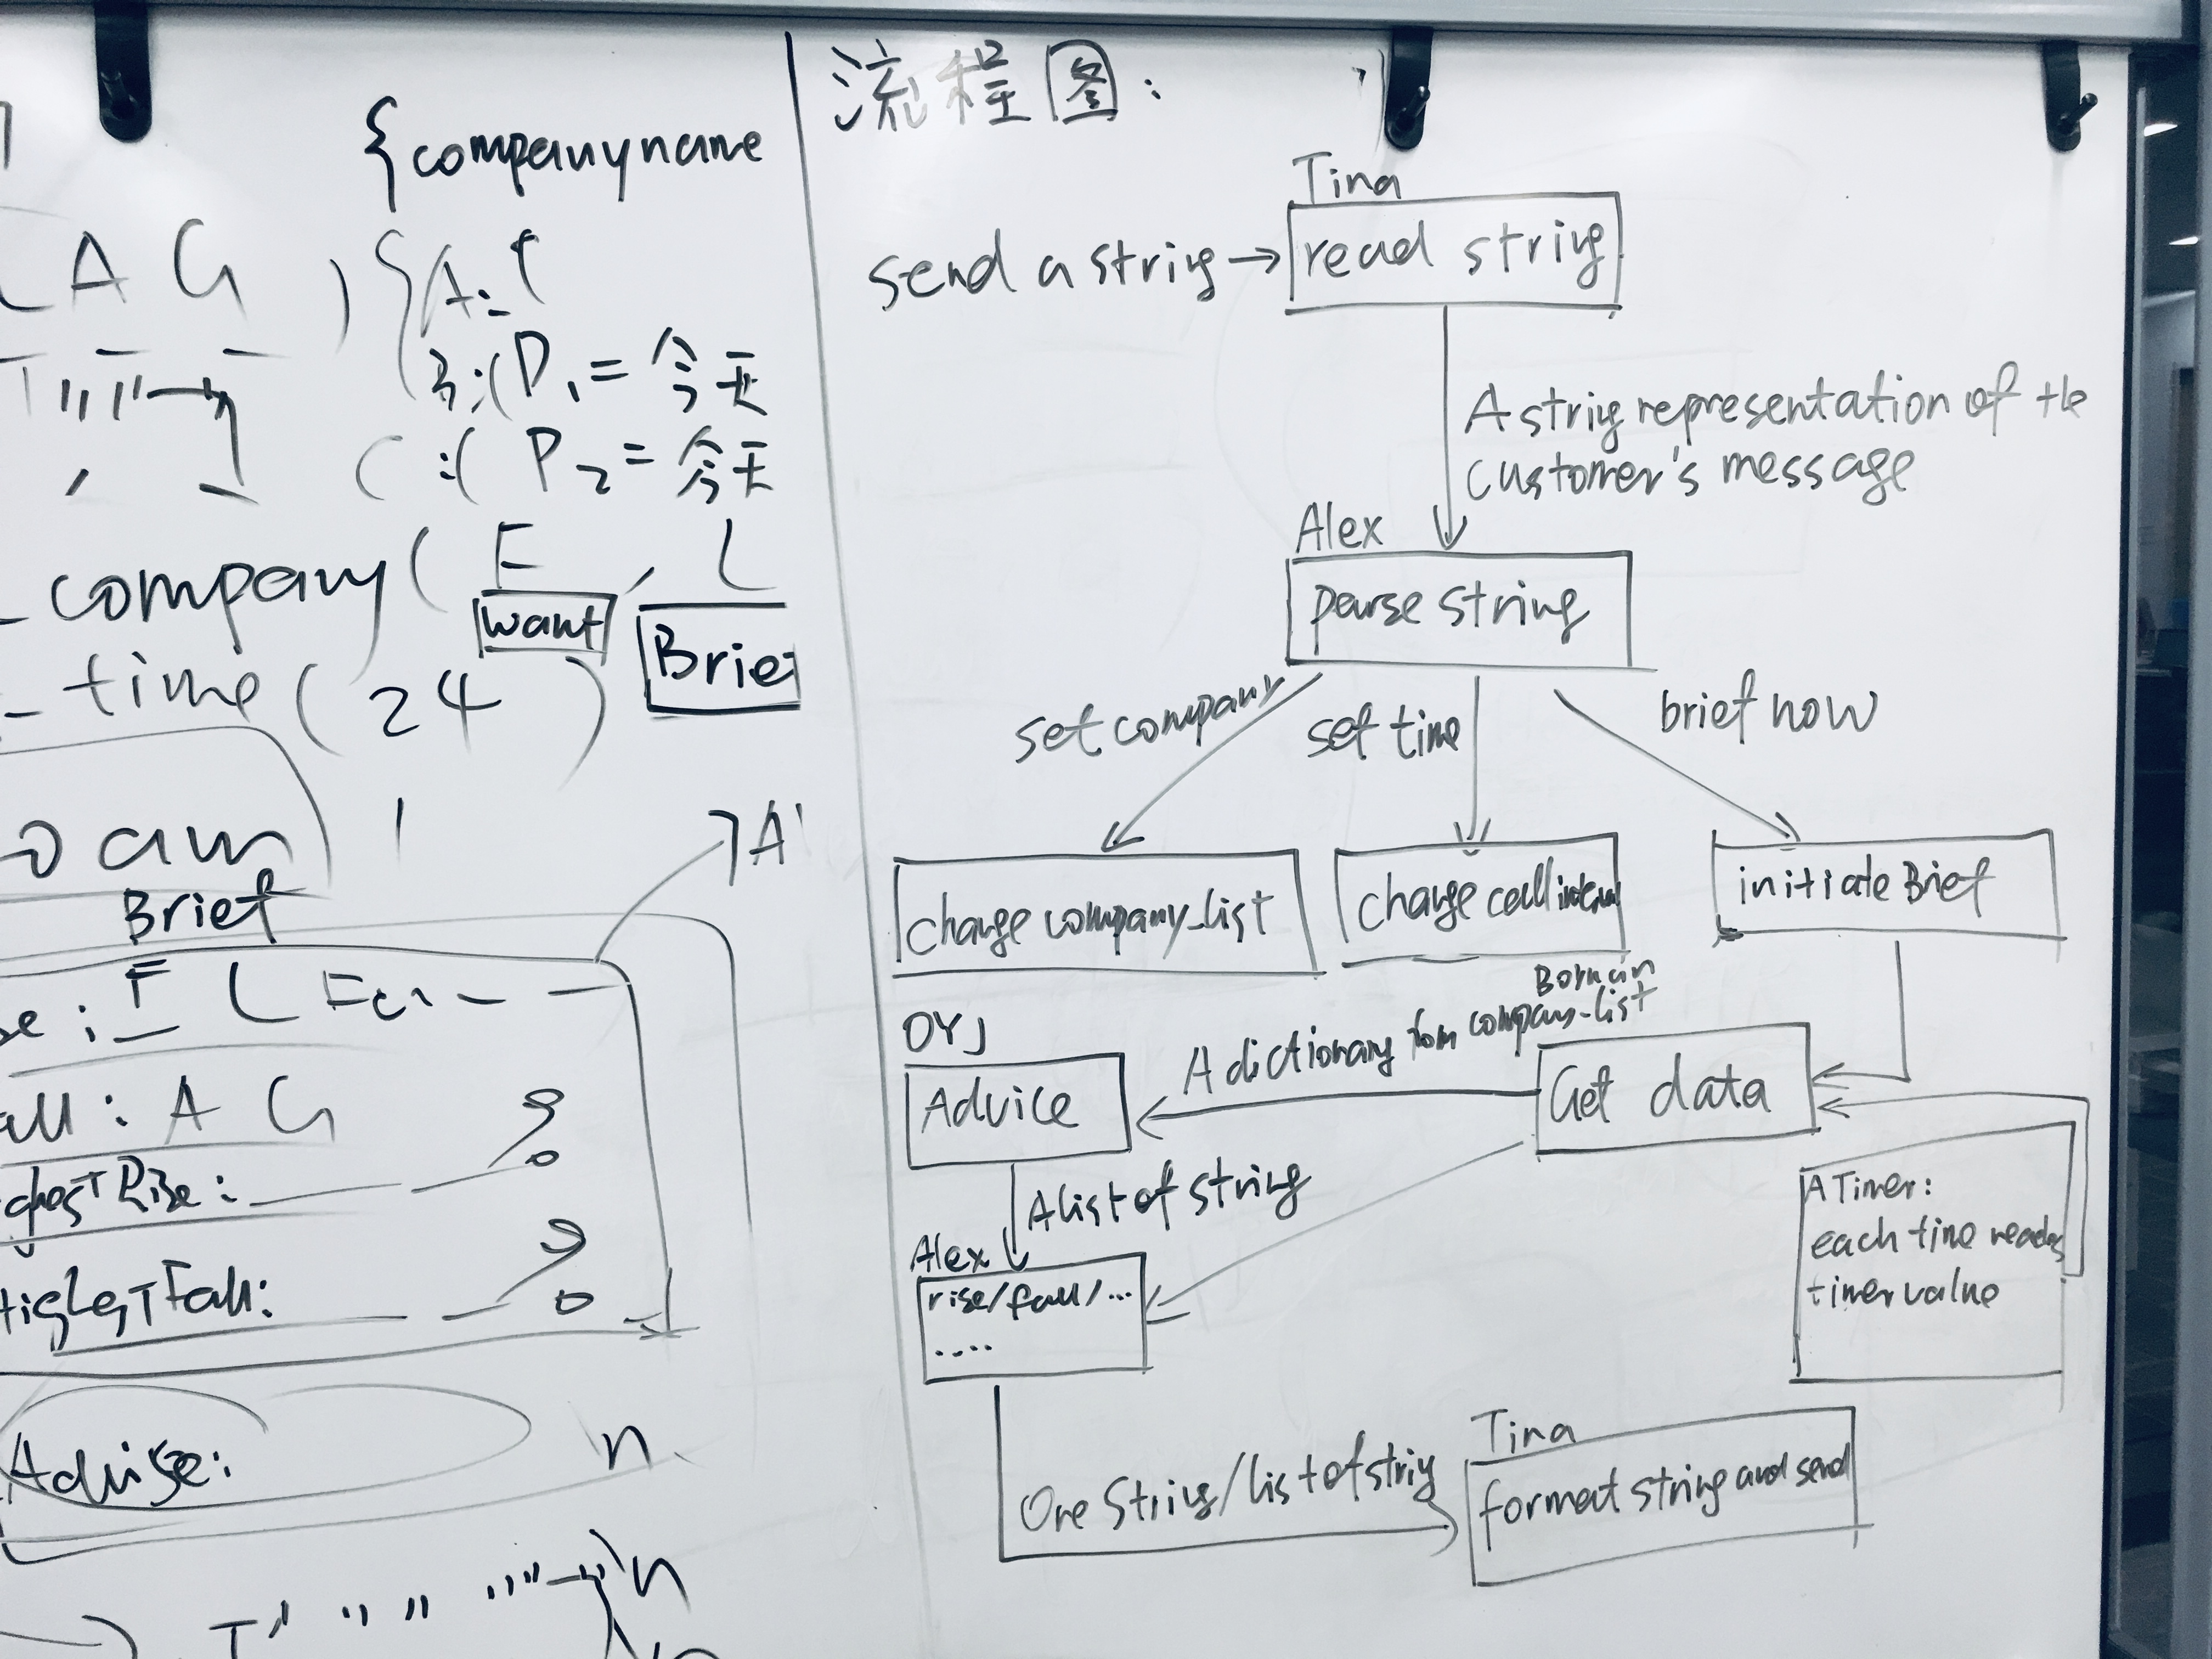 {companyname
A G
A:
B:( P1 = 今天
C:( P2 = 今天
_company( F , L
want
Brief
_time ( 24 )
Brief
: F L
all : A G
ghest Rise:
Highest Fall:
Advise:
n
n
流程图:
Tina
send a string → read string
A string representation of the
customer's message
Alex
parse string
set company
set time
brief now
change company_list
change call interval
initiate Brief
OYJ
Advice
A dictionary from company_list
Get data
A list of string
Alex
rise/fall/...
....
A Timer:
each time reaches
timer value
One String/list of string
Tina
format string and send